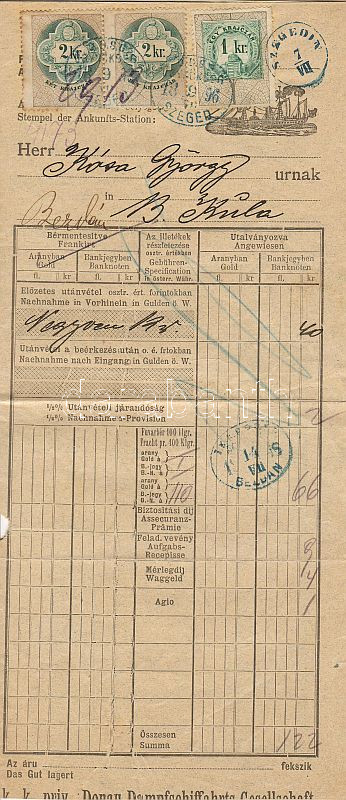 2 kr. 2 kr. 1 kr.
SZEGEDIN
7
VII
SZEGED
96
Stempel der Ankunfts-Station:
Herr Kósa György urnak
in B. Kula
Bezdán
Bérmentesítve
Frankirt
Az illetékek
részletezése
osztr. értékben
Gebühren-
Specification
in österr. Währ.
Utalványozva
Angewiesen
Aranyban
Gold
Bankjegyben
Banknoten
Aranyban
Gold
Bankjegyben
Banknoten
fl. kr. fl. kr. fl. kr. fl. kr.
Előzetes utánvétel osztr. ért. forintokban
Nachnahme in Vorhinein in Gulden ö. W.
Negyven kr. 40
Utánvétel a beérkezés után o. é. frtokban
Nachnahme nach Eingang in Gulden ö. W.
Utánvételi járandóság
Nachnahme-Provision
Fuvarbér 100 klgr.
Fracht pr. 100 Klgr.
arany
Gold à
B.-jegy
B.-N. à
arany
Gold à
B.-jegy
B.-N. à
110
66
BEZDAN
14
VII
Biztosítási díj
Assecuranz-
Prämie
Felad. vevény
Aufgabs-
Recepisse
Mérlegdíj
Waggeld
4
Agio
1
Összesen
Summa
122
Az áru fekszik
Das Gut lagert
k. k. priv. Donau Dampfschiffahrts-Gesellschaft